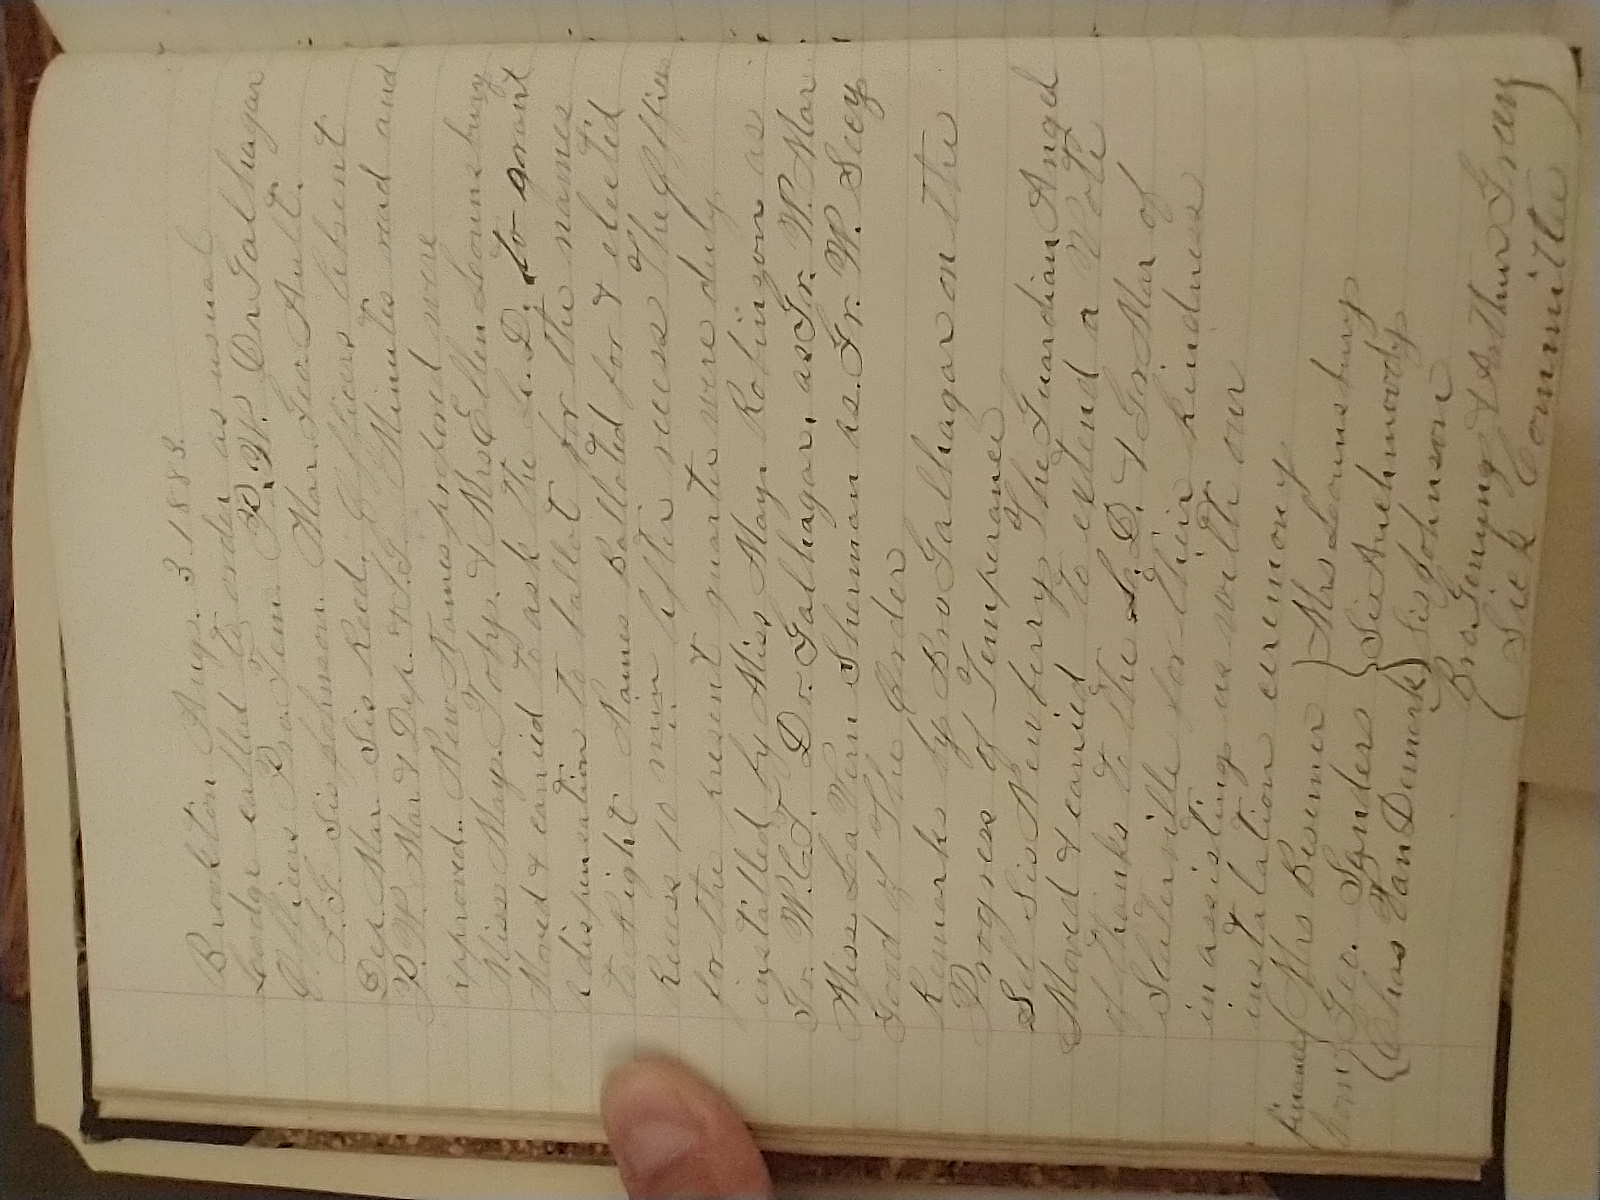 Brookton Augs. 3. 1883.
Lodge called to order as usual
Officers Pro. Tem. P. W. Dr Galhagar
I. G. Sis Johnson. Mar. Geo. Ault.
Dep. Mar. Sis Reed. Officers Absent
P. W. Mar & Dep. & I. G. Minutes read and
approved.. New Names propored were
Miss May. Toby. & Mrs Ellen Lounsbury
Moved & carried to ask the L. D. to grant
a dispensation to ballot for the names
to Night Names Balloted for & elected
Recess 10 min After recess The Officers
for the present quarter were duly
installed by Miss May. Robinson as
Gr. W. C. T. Dr. Galhagar. as Gr. W. Mar
Miss La Vern Sherman as. Gr. W. Secy
Good of The Order
Remarks by Bro Galhagar on the
Progress of Temperance
Sel Sis Newberry The Guardian Angel
Moved & carried to extend a Vote
of thanks to the L. D. & Gr Mar of
Slaterville for their kindness
in assisting us with our
instalation ceremony
finance ( Mrs Besemer } Mrs Lounsbury
Geo. Sanders } Sis Auchmoody
( Chas Van Demark ) Sis Johnson
Bro. Genung & Arthur Green
( Sick Committee )